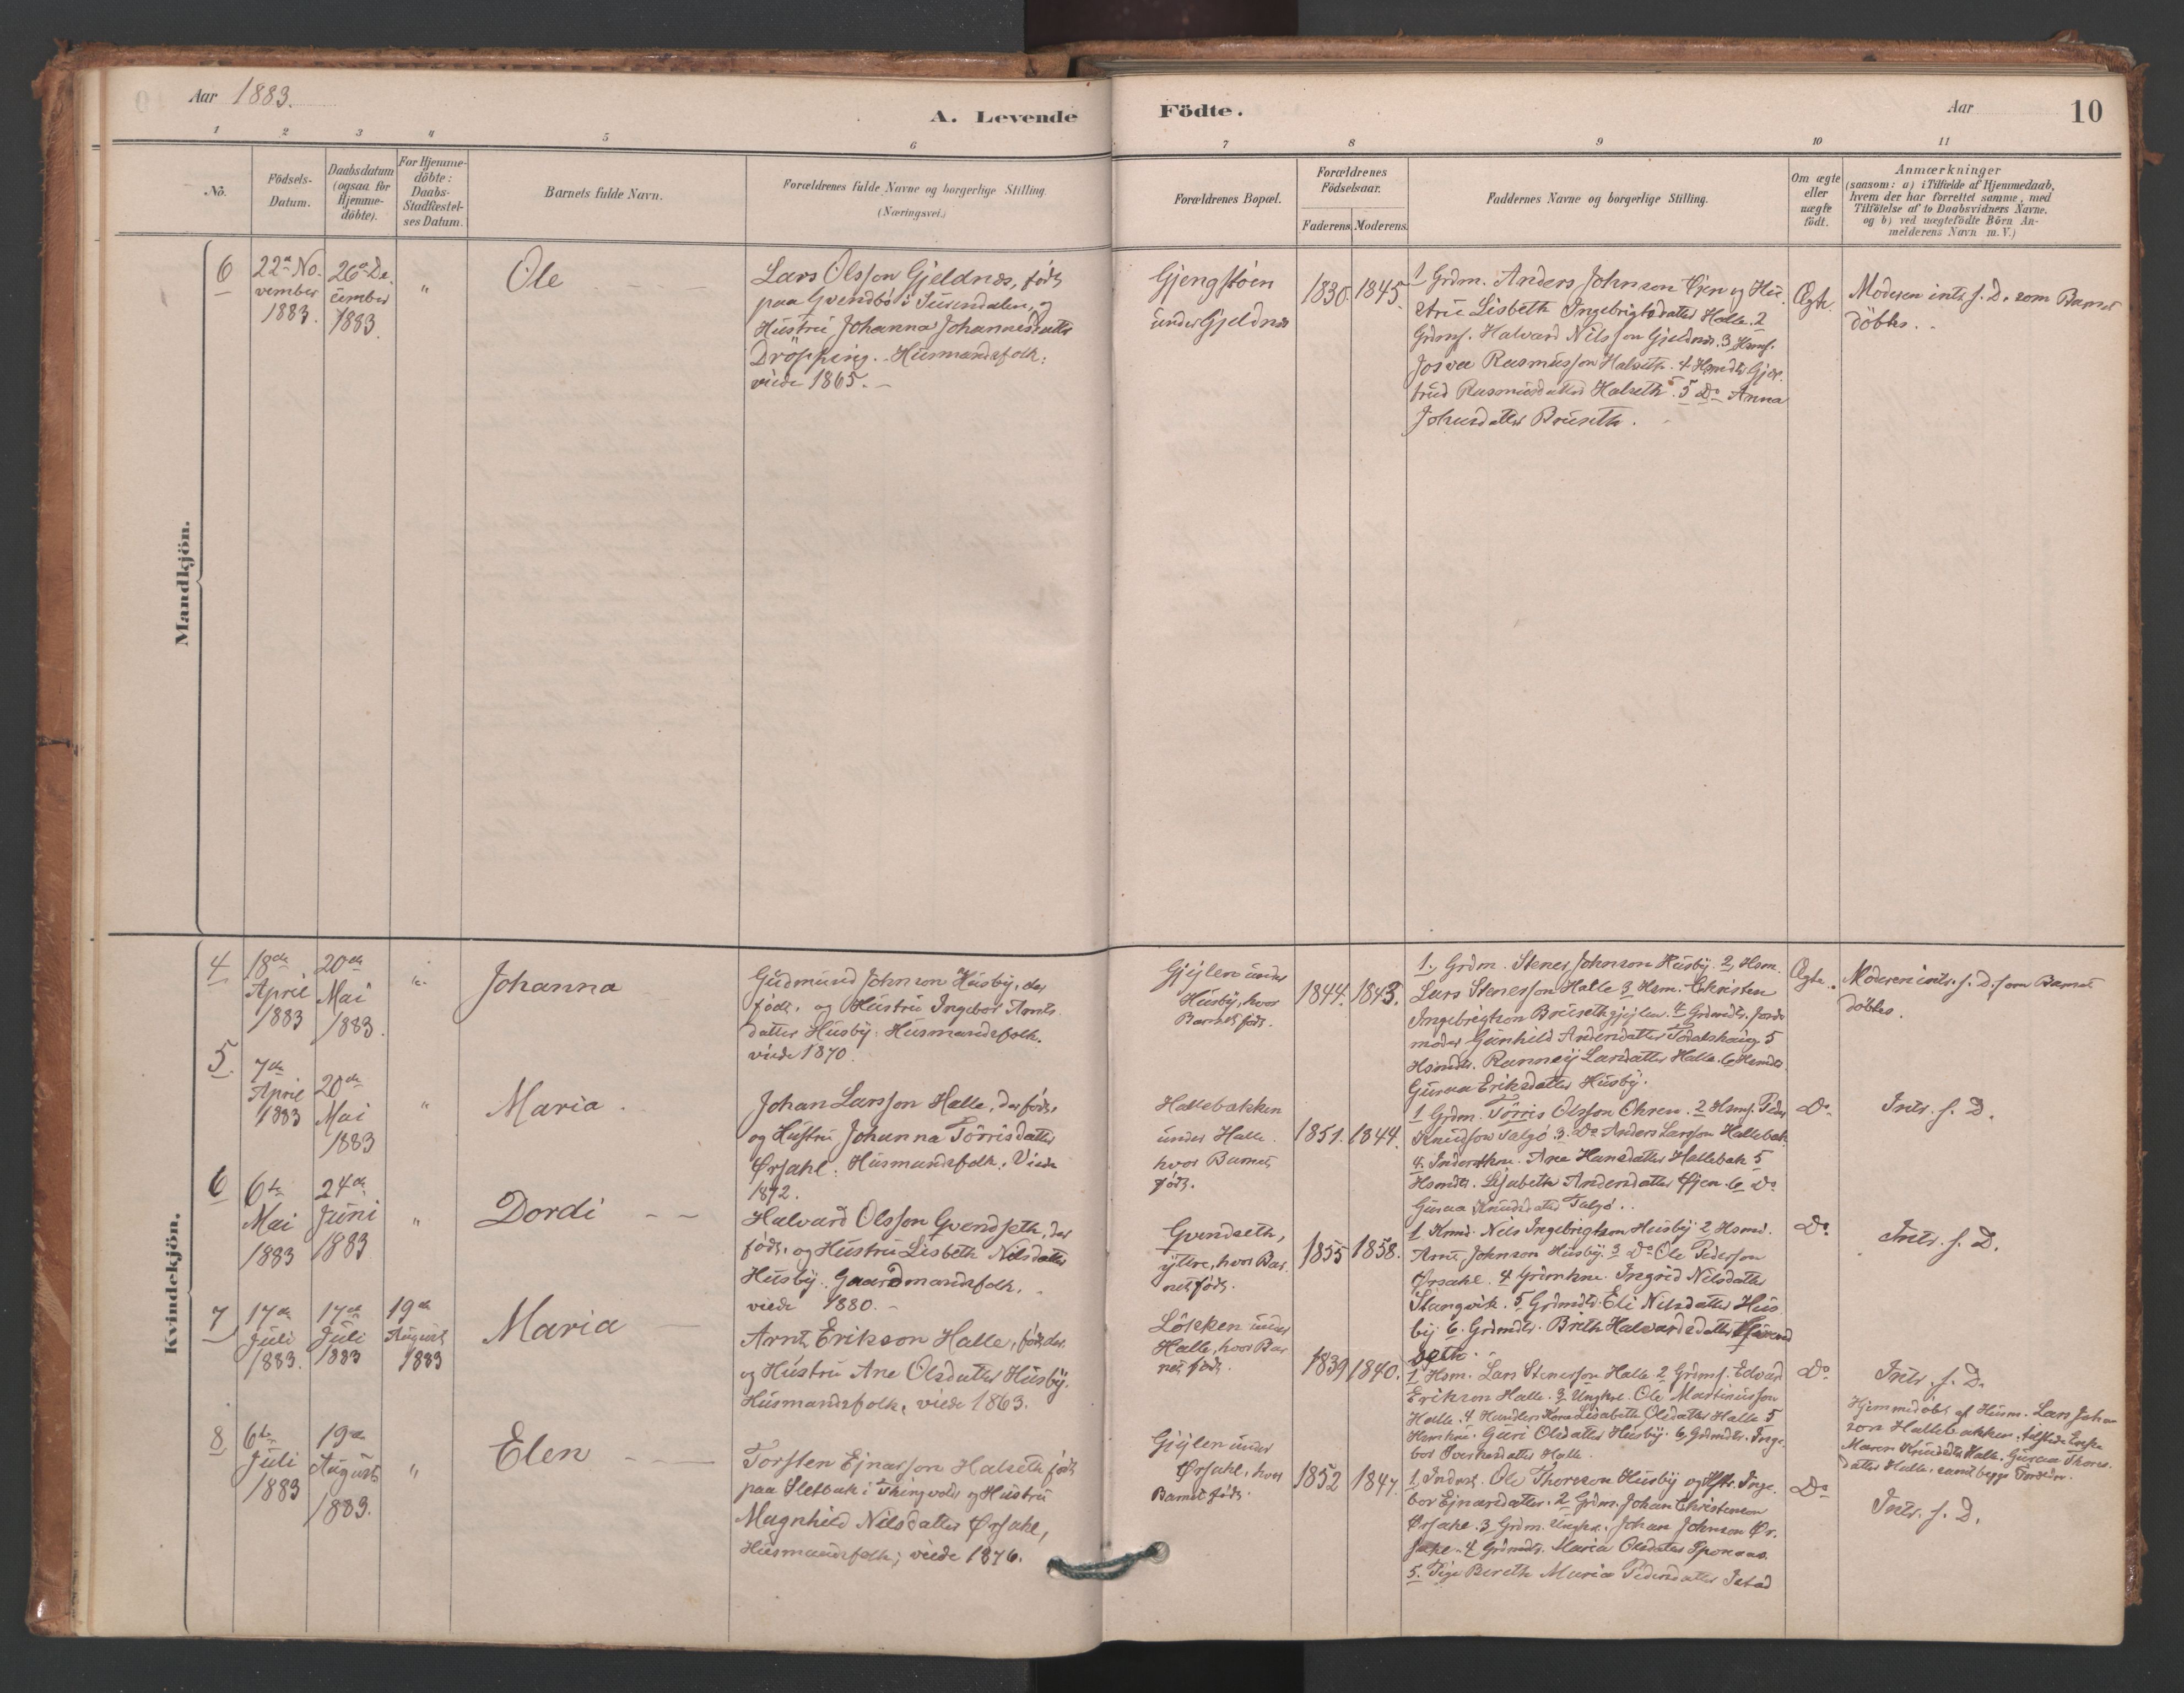 Aar 1883.
A. Levende Födte.
Aar
10
1 2 3 4 5 6 7 8 9 10 11
No.
Födsels-
Datum.
Daabsdatum
(ogsaa for
Hjemme-
döbte).
For Hjemme-
döbte:
Daabs-
Stadfæstel-
ses Datum.
Barnets fulde Navn.
Forældrenes fulde Navne og borgerlige Stilling.
(Næringsvei.)
Forældrenes Bopæl.
Forældrenes
Födselsaar.
Faderens. Moderens.
Faddernes Navne og borgerlige Stilling.
Om ægte
eller
uægte
födt.
Anmærkninger
(saasom: a) i Tilfælde af Hjemmedaab,
hvem der har forrettet samme, med
Tilföielse af to Daabsvidners Navne.
og b) ved uægtefödte Börn An-
melderens Navn m.V.)
Mandkjön.
6
22de No-
vember
1883.
26de De-
cember
1883.
"
Ole
Lars Olsson Gjeldnes, födt
paa Qvendbö i Surendalen, og
Hustru Johanna Johannesdatter
Dröpping. Husmandsfolk:
viede 1865.
Gjengstöen
under Gjeldnes
1830. 1845.
1 Grdm. Anders Johnson Öjen og Hu-
stru Lisbeth Ingebrigtsdatter Halle. 2
Grdms. Halvard Nilsson Gjeldnes. 3 Hsms.
Josva Rasmusson Halseth. 4 Hsmdtr Gjer-
trud Rasmusdatter Halseth. 5 Do Anna
Johnsdatter Bruseth.
Ægte.
Moderen intr. f. D. som Barnet
döbtes.
Kvindekjön.
4
18de
April
1883
20de
Mai
1883.
"
Johanna
Gudmund Johnson Husby, der
födt, og Hustru Ingebor Arnts-
datter Husby. Husmandsfolk.
viede 1870.
Gjylen under
Husby, hvor
Barnet födt.
1844. 1843.
1, Grdm. Stener Johnson Husby. 2, Hsm.
Lars Stenersson Halle 3 Hsm. Christen
Ingebrigtson Brusethgjylen. 4 Grdmdtr. Jorde-
moder Gunhild Andersdatter Todalshaug. 5
Hsmdtr. Rannej Larsdatter Halle. 6 Hsmdtr.
Guroa Eriksdatter Husby.
Ægte.
Moderen intr. f. D. som Barnet
döbtes.
5.
7de
April
1883
20de
Mai
1883
"
Maria.
Johan Larsson Halle, der födt,
og Hustru Johanna Törrisdatter
Ørsahl. Husmandsfolk. Viede
1872.
Hallebakken
under Halle.
hvor Barnet
födt.
1851. 1844.
1 Grdm. Törris Olsson Ohren. 2 Hsms. Peder
Knudsson Talgö. 3. Do Anders Larsson Hallebak.
4. Inderstkne. Ane Hansdatter Hallebak 5
Hsmdtr. Lisabeth Andersdatter Öjen. 6 Do
Guroa Knudsdatter Talgö.
Do
Intr. f. D.
6
6te
Mai
1883
24de
Juni
1883
"
Dordi
Halvard Olsson Qvendseth, der
födt, og Hustru Lisbeth Nilsdatter
Husby. Gaardmandsfolk.
viede 1880.
Qvendseth,
yttre, hvor Bar-
net födt.
1855 1858.
1 Nils Ingebrigtson Husby 2 Hsmd.
Arnt Johnson Husby. 3 Do Ole Pederson
Ørsahl. 4 Grdmkne. Ingrid Nilsdatter
Stangvik. 5 Grdmdtr. Eli Nilsdatter Hus-
by 6. Grdmdtr. Breth Halvardsdatter Qvend-
seth.
Do
Intr. f. D.
7
17de
Juli
1883.
17de
Juli
1883
19de
August
1883
Maria
Arnt Erikson Halle, födt der
og Hustru Ane Olsdatter Husby.
Husmandsfolk, viede 1863.
Lökken under
Halle, hvor Bar-
net födt.
1839 1840.
1 Hsm. Lars Stenersson Halle 2 Grdms. Edvard
Erikson Halle. 3 Ungkrl. Ole Martinusson
Halle. 4 Handlers Kone Lisabeth Olsdatter Halle 5
Hsmkne. Guri Olsdatter Husby. 6. Grdmdtr. Inge-
bor Sverkesdatter Halle.
Do
Intr. f. D.
Hjemmedöbt af Husm. Lars Johan-
son Hallebakken, tilstede Enke
Maren Knudsdtr Halle, Guroa Thores-
datter Halle, samt begge Forældre.
8
6te
Juli
1883
19de
August
1883.
"
Elen
Torsten Ejnarsson Halseth födt
paa Sletbak i Thingvold og Hustru
Magnhild Nilsdatter Ørsahl,
Husmandsfolk; viede 1876.
Gjylen under
Ørsahl, hvor
Barnet födt.
1852 1847.
1, Inderst. Ole Thoreson Husby og Hstr. Inge-
bor Ejnarsdatter. 2 Grdm. Johan Christenson
Ørsahl. 3 Grdm. Ungkrl. Johan Johnson Ør-
sahl. 4 Grdmdtr. Maria Olsdatter
5. Pige Bereth Maria Pedersdatter
Do
Intr. f. D.